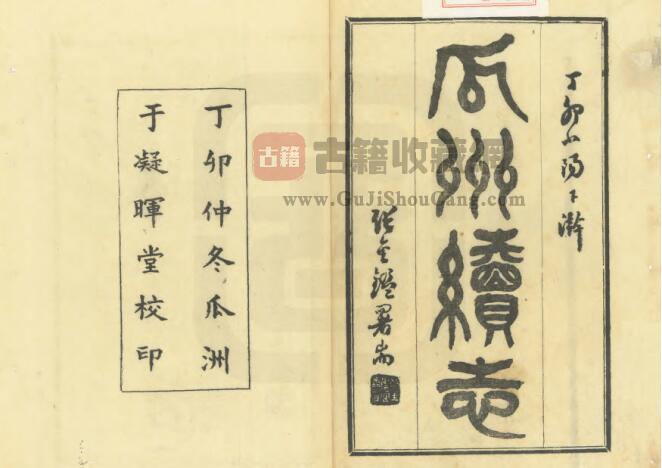 丁卯小陽下澣
瓜洲續志
張金鑑署耑
丁卯仲冬瓜洲
于凝暉堂校印
古籍
古籍收藏網
www.GuJiShouCang.com